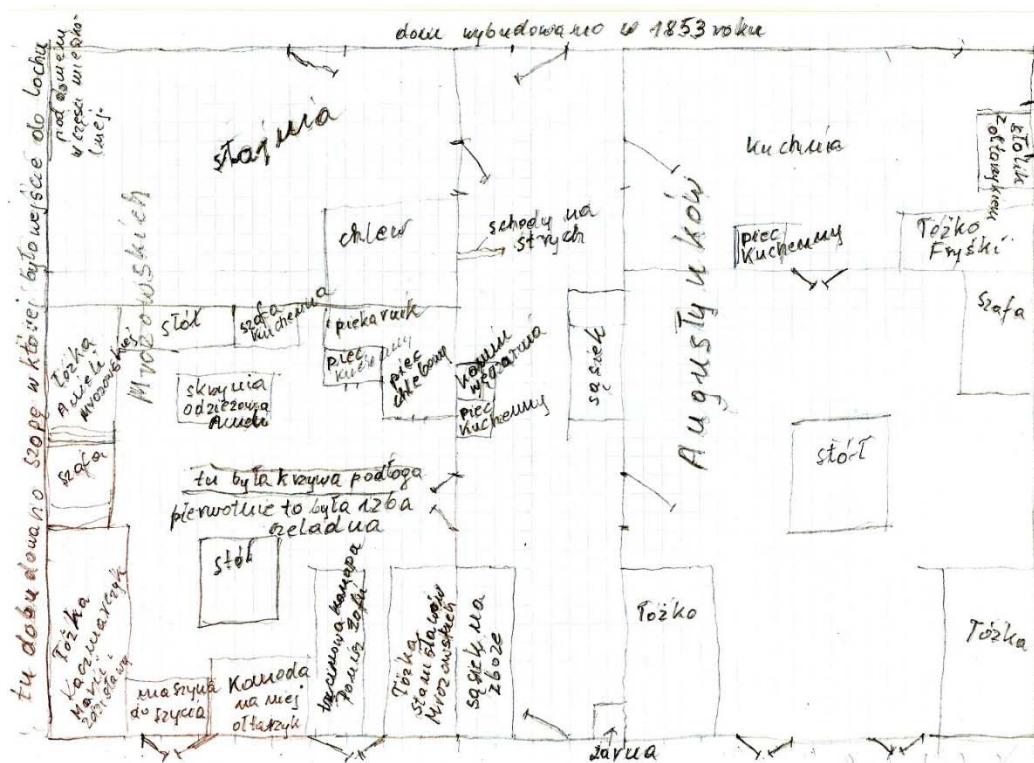 dom wybudowano w 1853 roku
tu dobudowano szopę w której było wejście do lochu
pod domem
w części mieszka-
lnej.
stajnia
Mrozowskich
chlew
schody na
strych
Augustynków
kuchnia
stolik
z ołtarzykiem
piec
kuchenny
łóżko
Fryśki
szafa
łóżka
Anieli
Mrozowskiej
stół
szafa
kuchenna
piekarnik
piec
kuchenny
piec
chlebowy
komin
wędzarnia
piec
kuchenny
sąsiek
skrzynia
odzieżowa
Anieli
szafa
stół
tu była krzywa podłoga
pierwotnie to była izba
czeladna
stół
łóżka
Kaczmarczyk
Marii i
Zdzisława
maszyna
do szycia
komoda
na niej
ołtarzyk
kanapa
łóżka
Stanisławów
Mrozowskich
sąsieki na
zboże
żarna
łóżko
łóżka